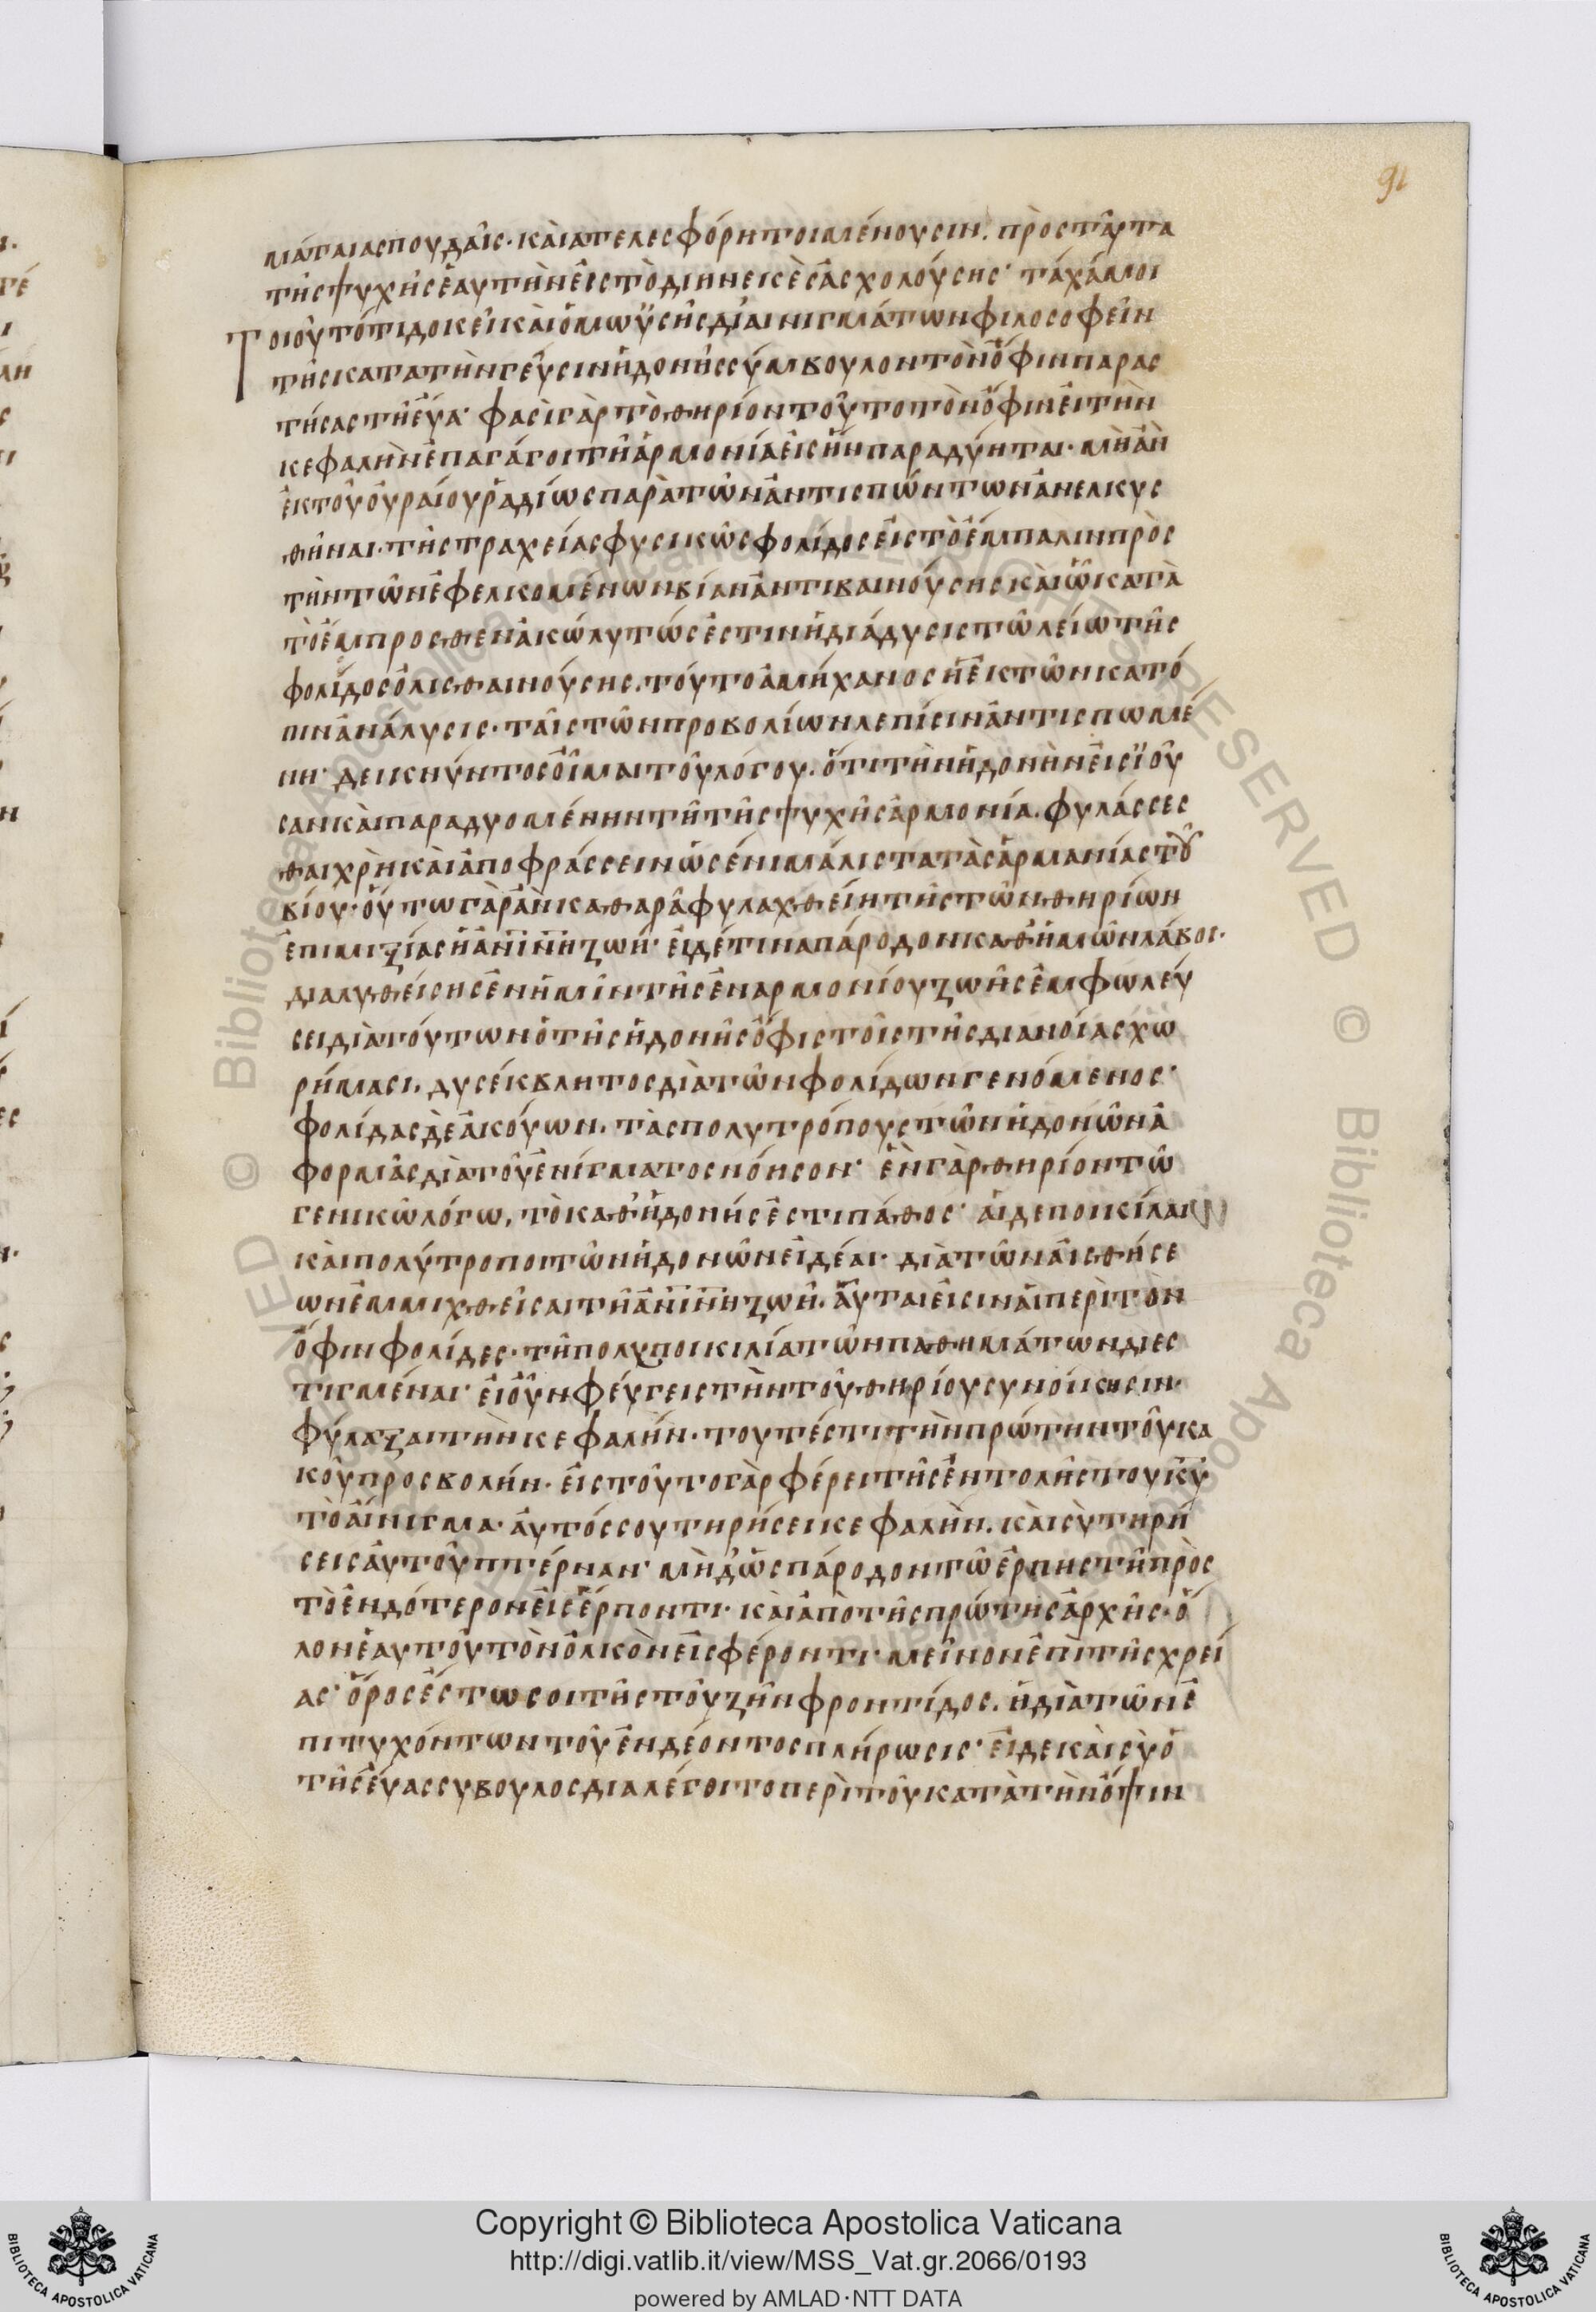 91
μάταιαςπουδαῖς· καὶ ἀτελεσφόρητοι μένουσιν. πρὸς ταῦτα
τῆς ψυχῆς ἑαυτὴν εἰς τὸ διηνεκὲς ἀσχολούσης· τάχά μοι
Τοιοῦτό τι δοκεῖ καὶ ὁ μωϋσῆς δι' αἰνιγμάτων φιλοσοφεῖν
τῆς κατα τὴν γεῦσιν ἡδονῆς σύμβουλον τὸν ὄφιν παρασ
τήσας τῆ εὔα· φασὶ γὰρ τὸ θηρίον τοῦτο τὸν ὄφιν εἰ τὴν
κεφαλὴν ἐπαγάγοι τῆ ἁρμονία εἰς ἣν παραδύηται· μὴ ἂν
ἐκ τοῦ οὐραίου ῥαδίως παρὰ τῶν ἀντισπώντων ἀνελκυσ
θῆναι· τῆς τραχείας φυσικῶς φολίδος εἰς τὸ ἔμπαλιν πρὸς
τὴν τῶν ἐφελκομένων βίαν ἀντιβαινούσης καὶ ὧ κατὰ
τὸ ἔμπροσθεν ἀκώλυτώς ἐστιν ἡ διάδυσις τῶ λείω τῆς
φολίδος ὀλισθαινούσης. τούτο ἀμήχανος ἡ ἐκ τῶν κατό
πιν ἀνάλυσις· ταῖς τῶν προβολίων λεπίσιν ἀντισπωμέ
νη· δεικνύντος οἶμαι τοῦ λόγου. ὅτι τὴν ἡδονὴν εἰσϊοῦ
σαν καὶ παραδυομένην τῆ τῆς ψυχῆς ἁρμονία. φυλάσσεσ
θαι χρὴ καὶ ἀποφράσσειν ὡς ἔνι μάλιστα τὰς ἁρμανίας τοῦ
βίου· οὕτω γὰρ ἂν καθαρὰ φυλαχθείη τῆς τῶν θηρίων
ἐπιμιξίας ἡ ἀνίνη ζωή· εἰ δέ τινα πάροδον καθ' ἡμῶν λάβοι·
διαλυθείσης ἐν ἡμῖν τῆς ἐναρμονίου ζωῆς ἐμφωλεύ
σει διὰ τούτων ὁ τῆς ἡδονῆς ὄφις τοῖς τῆς διανοίας χω
ρήμασι, δυσέκβλητος διὰ τῶν φολίδων γενόμενος·
φολίδας δὲ ἀκούων, τὰς πολυτρόπους τῶν ἡδονῶν ἀ
φορμὰς διὰ τοῦ ἐνίγματος νόησον· ἓν γὰρ θηρίον τῶ
γενικῶ λόγω, τὸ καθ' ἡδονήν ἐστι πάθος· αἱ δε ποικίλαι
καὶ πολύτροποι τῶν ἡδονῶν εἰδέαι· διὰ τῶν αἰσθήσε
ων ἐμμιχθεῖσαι τῆ ἀνίνη ζωῆ. αὗταί εἰσιν αἱ περὶ τὸν
ὄφιν φολίδες· τῆ πολυποικιλία τῶν παθημάτων διεσ
τιγμέναι· εἰ οὖν φεύγεις τὴν τοῦ θηρίου συνοίκησιν·
φύλαξαι τὴν κεφαλήν· τουτέστι τὴν πρώτην τοῦ κα
κοῦ προσβολήν· εἰς τοῦτο γὰρ φέρει τῆς ἐντολῆς του κυ
τὸ αἴνιγμα· αὐτός σου τηρήσει κεφαλὴν. καὶ σὺ τηρή
σεις αὐτοῦ πτέρναν· μὴ δῶς πάροδον τῶ ἑρπηστῆ πρὸς
τὸ ἐνδότερον εἰσέρποντι· καὶ ἀπὸ τῆς πρώτης ἀρχῆς· ὅ
λον ἑαυτοῦ τὸν ὁλκὸν εἰσφέροντι· μεῖνον ἐπὶ τῆς χρεί
ας· ὅρος ἔστω σοι τῆς τοῦ ζῆν φροντίδος. ἡ διὰ τῶν ἐ
πιτυχόντων τοῦ ἐνδέοντος πλήρωσις· εἰ δε καὶ σὺ ὁ
τῆς εὔας συβουλος διαλέγοιτο περὶ τοῦ κατὰ τὴν ὄψιν
Copyright © Biblioteca Apostolica Vaticana
http://digi.vatlib.it/view/MSS_Vat.gr.2066/0193
powered by AMLAD·NTT DATA
BIBLIOTECA APOSTOLICA VATICANA
BIBLIOTECA APOSTOLICA VATICANA